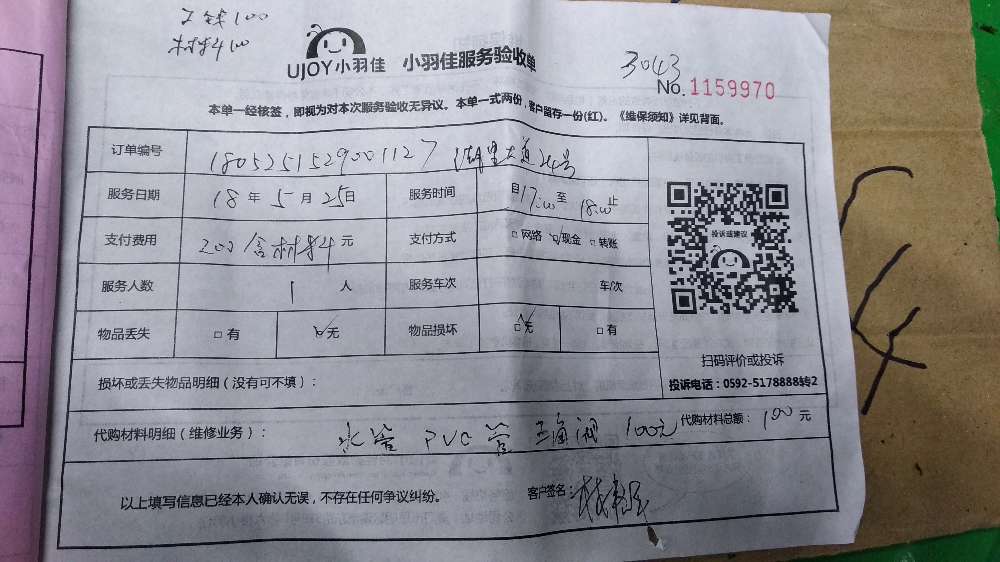 工钱100
材料100
UJOY小羽佳 小羽佳服务验收单
3043
No.1159970
本单一经核签，即视为对本次服务验收无异议。本单一式两份，客户留存一份(红)。《维保须知》详见背面。
订单编号 1805251529001127 湖里大道24号
服务日期 18年5月25日 服务时间 自17:00至18:00止
支付费用 200含材料元 支付方式 □网络 ☑现金 □转账
服务人数 1人 服务车次 车/次
物品丢失 □有 ☑无 物品损坏 ☑无 □有
投诉或建议
扫码评价或投诉
投诉电话：0592-5178888转2
损坏或丢失物品明细（没有可不填）：
代购材料明细（维修业务）： 水管 PVC管 三角阀 100元 代购材料总额：100元
以上填写信息已经本人确认无误，不存在任何争议纠纷。 客户签名：